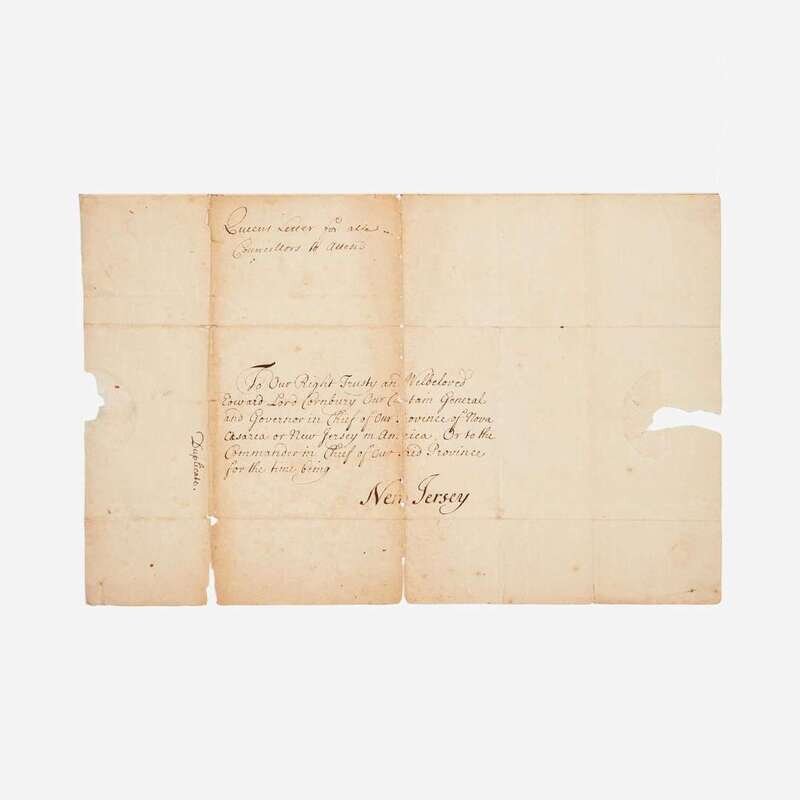 Queens Letter for
Councellors to Attend
To Our Right Trusty an Welbeloved
Edward Lord Cornbury Our Ca tain General
and Governor in Chief of Our Province of Nova
Cæsarea or New Jersey in America, Or to the
Commander in Chief of Our said Province
for the time being
New Jersey
Duplicate.